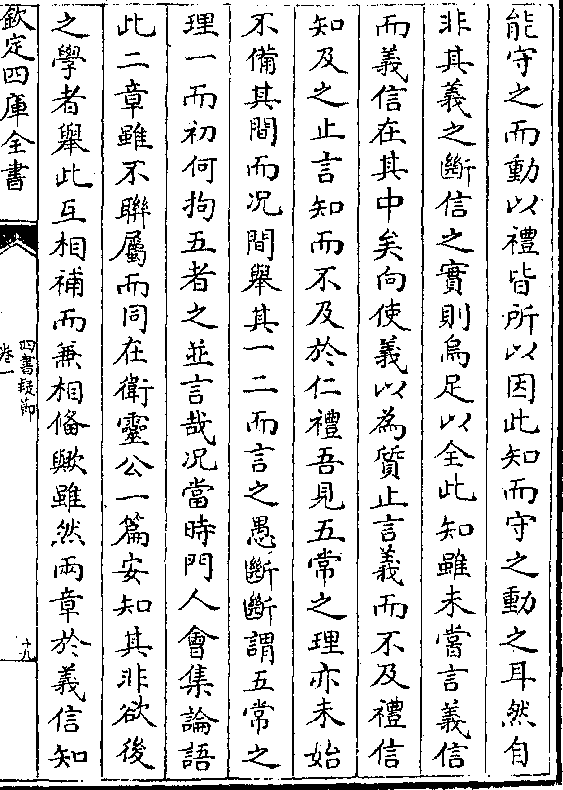 能守之而動以禮皆所以因此知而守之動之耳然自
非其義之斷信之實則烏足以全此知雖未嘗言義信
而義信在其中矣向使義以為質止言義而不及禮信
知及之止言知而不及於仁禮吾見五常之理亦未始
不備其間而况間舉其一二而言之愚斷斷謂五常之
理一而初何拘五者之並言哉况當時門人會集論語
此二章雖不聯屬而同在衛靈公一篇安知其非欲後
之學者舉此互相補而兼相備歟雖然兩章於義信知
欽定四庫全書
四書疑節
卷一
十九